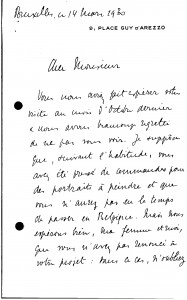 Bruxelles, ce 14 mars 1930
9, PLACE GUY D'AREZZO
Cher Monsieur
Vous nous aviez fait espérer votre
visite au mois d'Octobre dernier
nous avons beaucoup regretté
de ne pas vous voir. Je suppose
que, suivant l'habitude, vous
avez été pressé de commandes pour
des portraits à peindre et que
vous n'aurez pas eu le temps
de passer en Belgique. Mais nous
espérons bien, ma femme et moi,
que vous n'avez pas renoncé à
votre projet : dans ce cas, n'oubliez